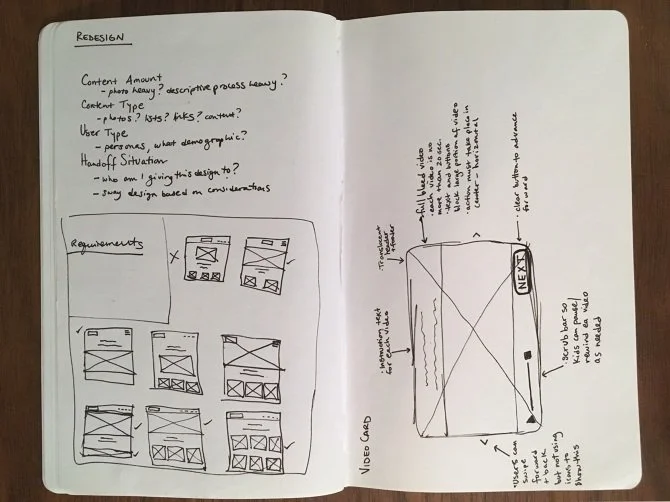 REDESIGN
Content Amount
- photo heavy? descriptive process heavy?
Content Type
- photos? lists? links? content?
User Type
- personas, what demographic?
Handoff Situation
- who am I giving this design to?
- sway design based on considerations
Requirements
VIDEO CARD
· Instruction text
for each video
· Translucent
header
+ footer
full bleed video
· each video is no
more than 20 sec.
· text and buttons
block large portion of video
· action must take place in
center - horizontal
· clear button to advance
forward
NEXT
· scrub bar so
kids can pause/
rewind ea video
as needed
· Users can
swipe
forward
+ back
but not using
icons to
show this